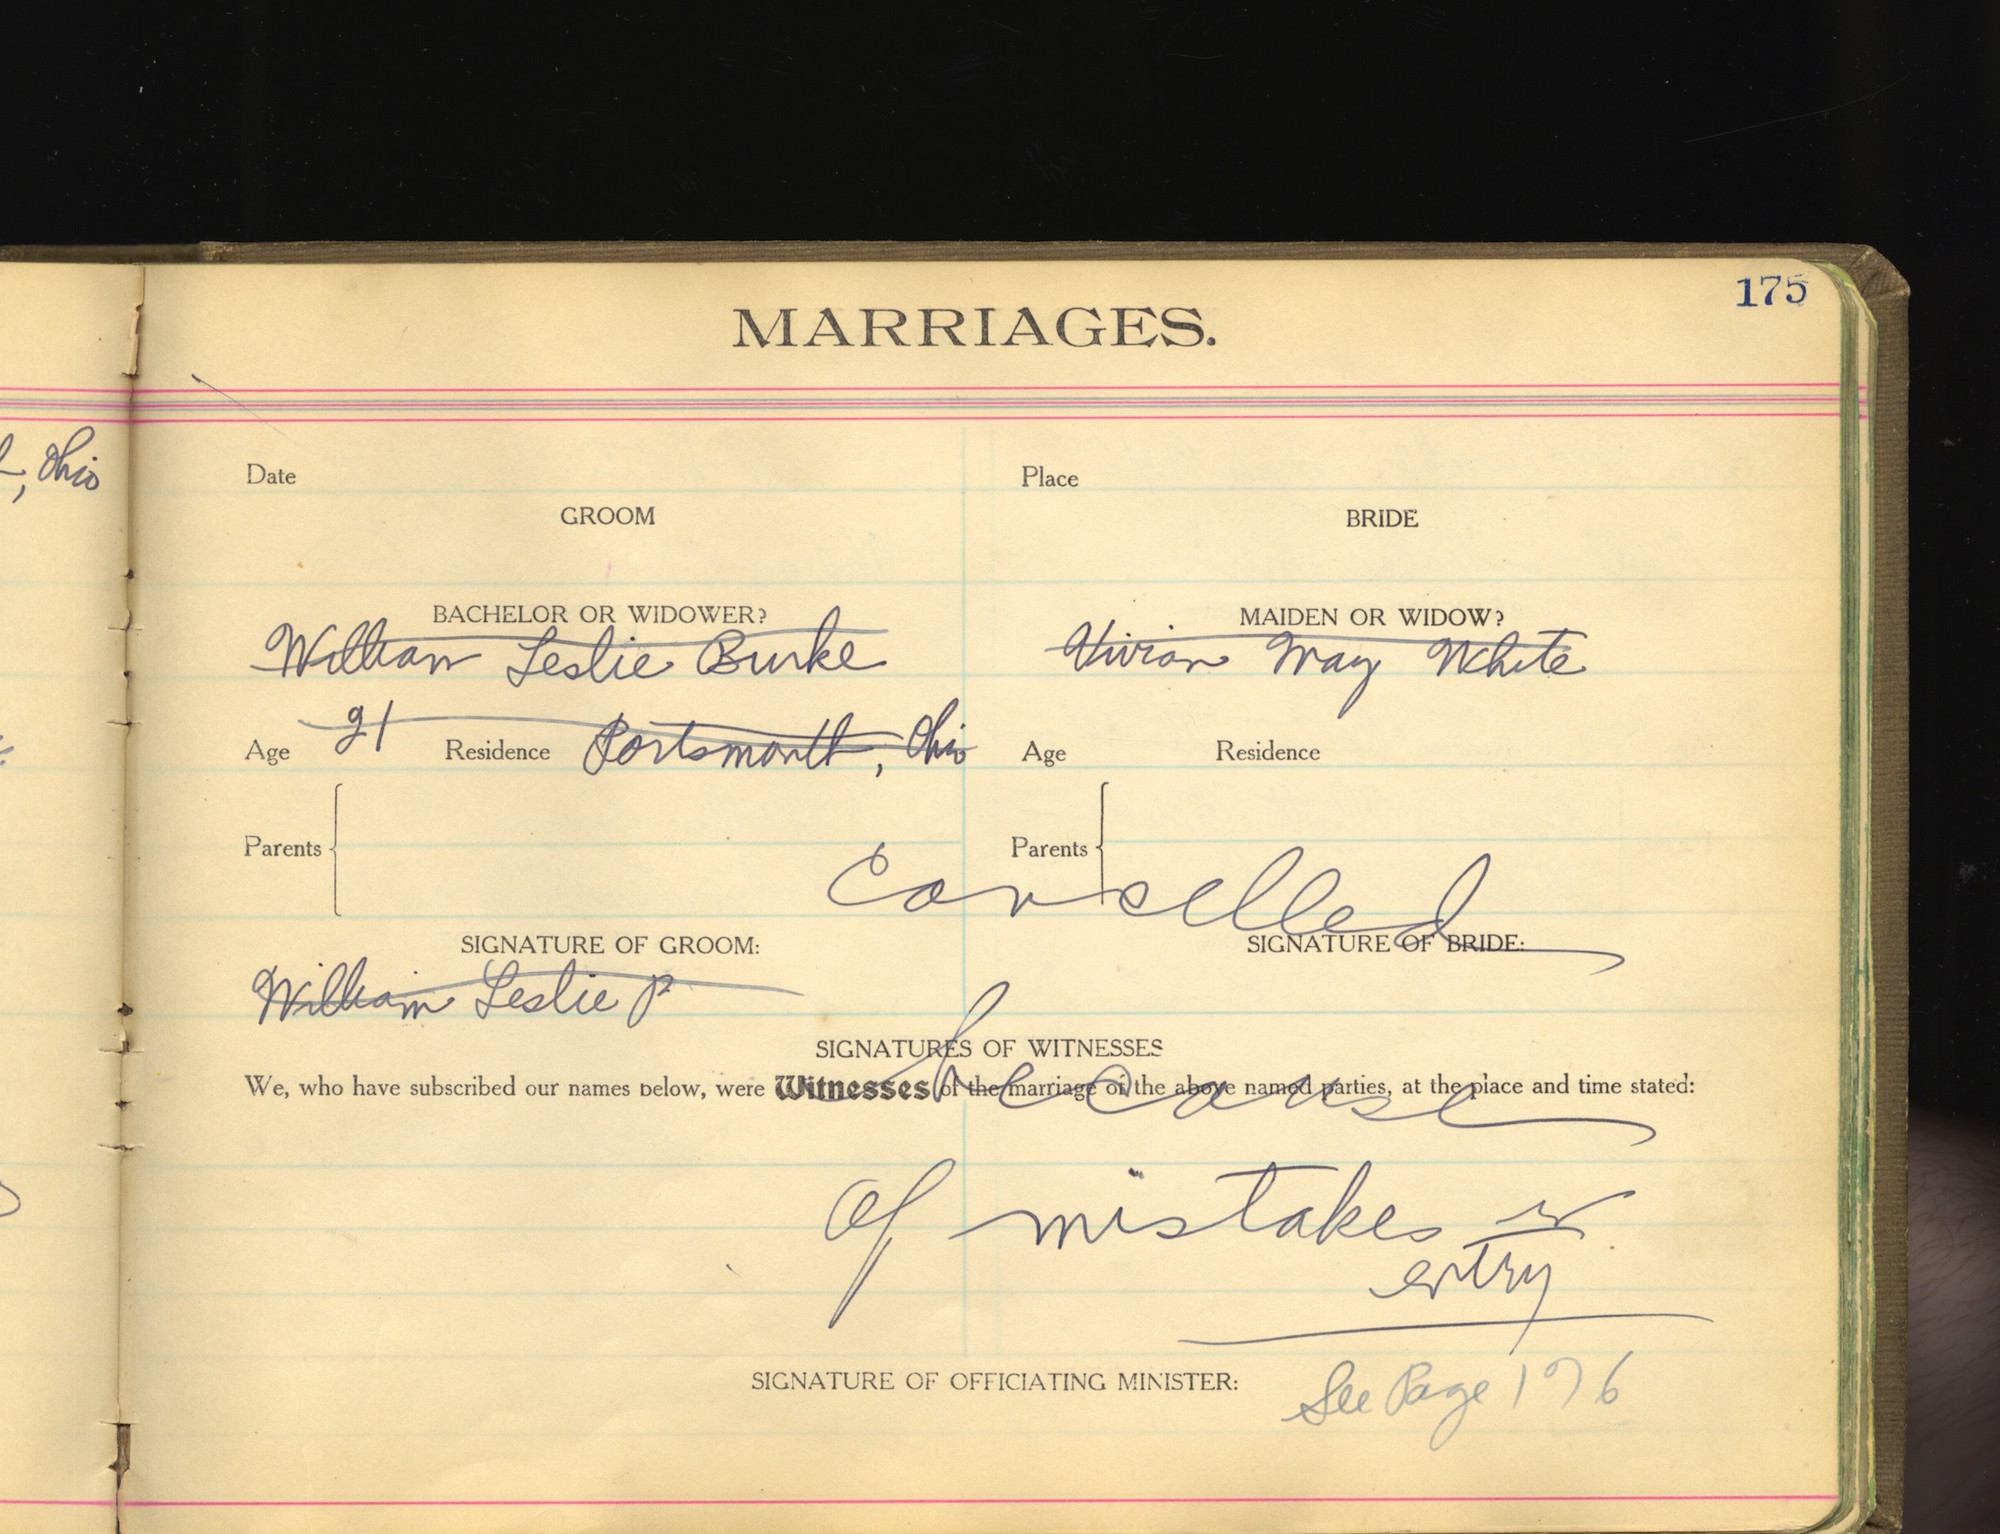 175
MARRIAGES.
, Ohio
Date Place
GROOM BRIDE
BACHELOR OR WIDOWER? MAIDEN OR WIDOW?
William Leslie Burke Vivian May White
Age 21 Residence Portsmouth, Ohio Age Residence
Parents Parents
Cancelled
SIGNATURE OF GROOM: SIGNATURE OF BRIDE:
William Leslie P
SIGNATURES OF WITNESSES
We, who have subscribed our names below, were Witnesses of the marriage of the above named parties, at the place and time stated:
because
of mistakes in
entry
SIGNATURE OF OFFICIATING MINISTER: See Page 176